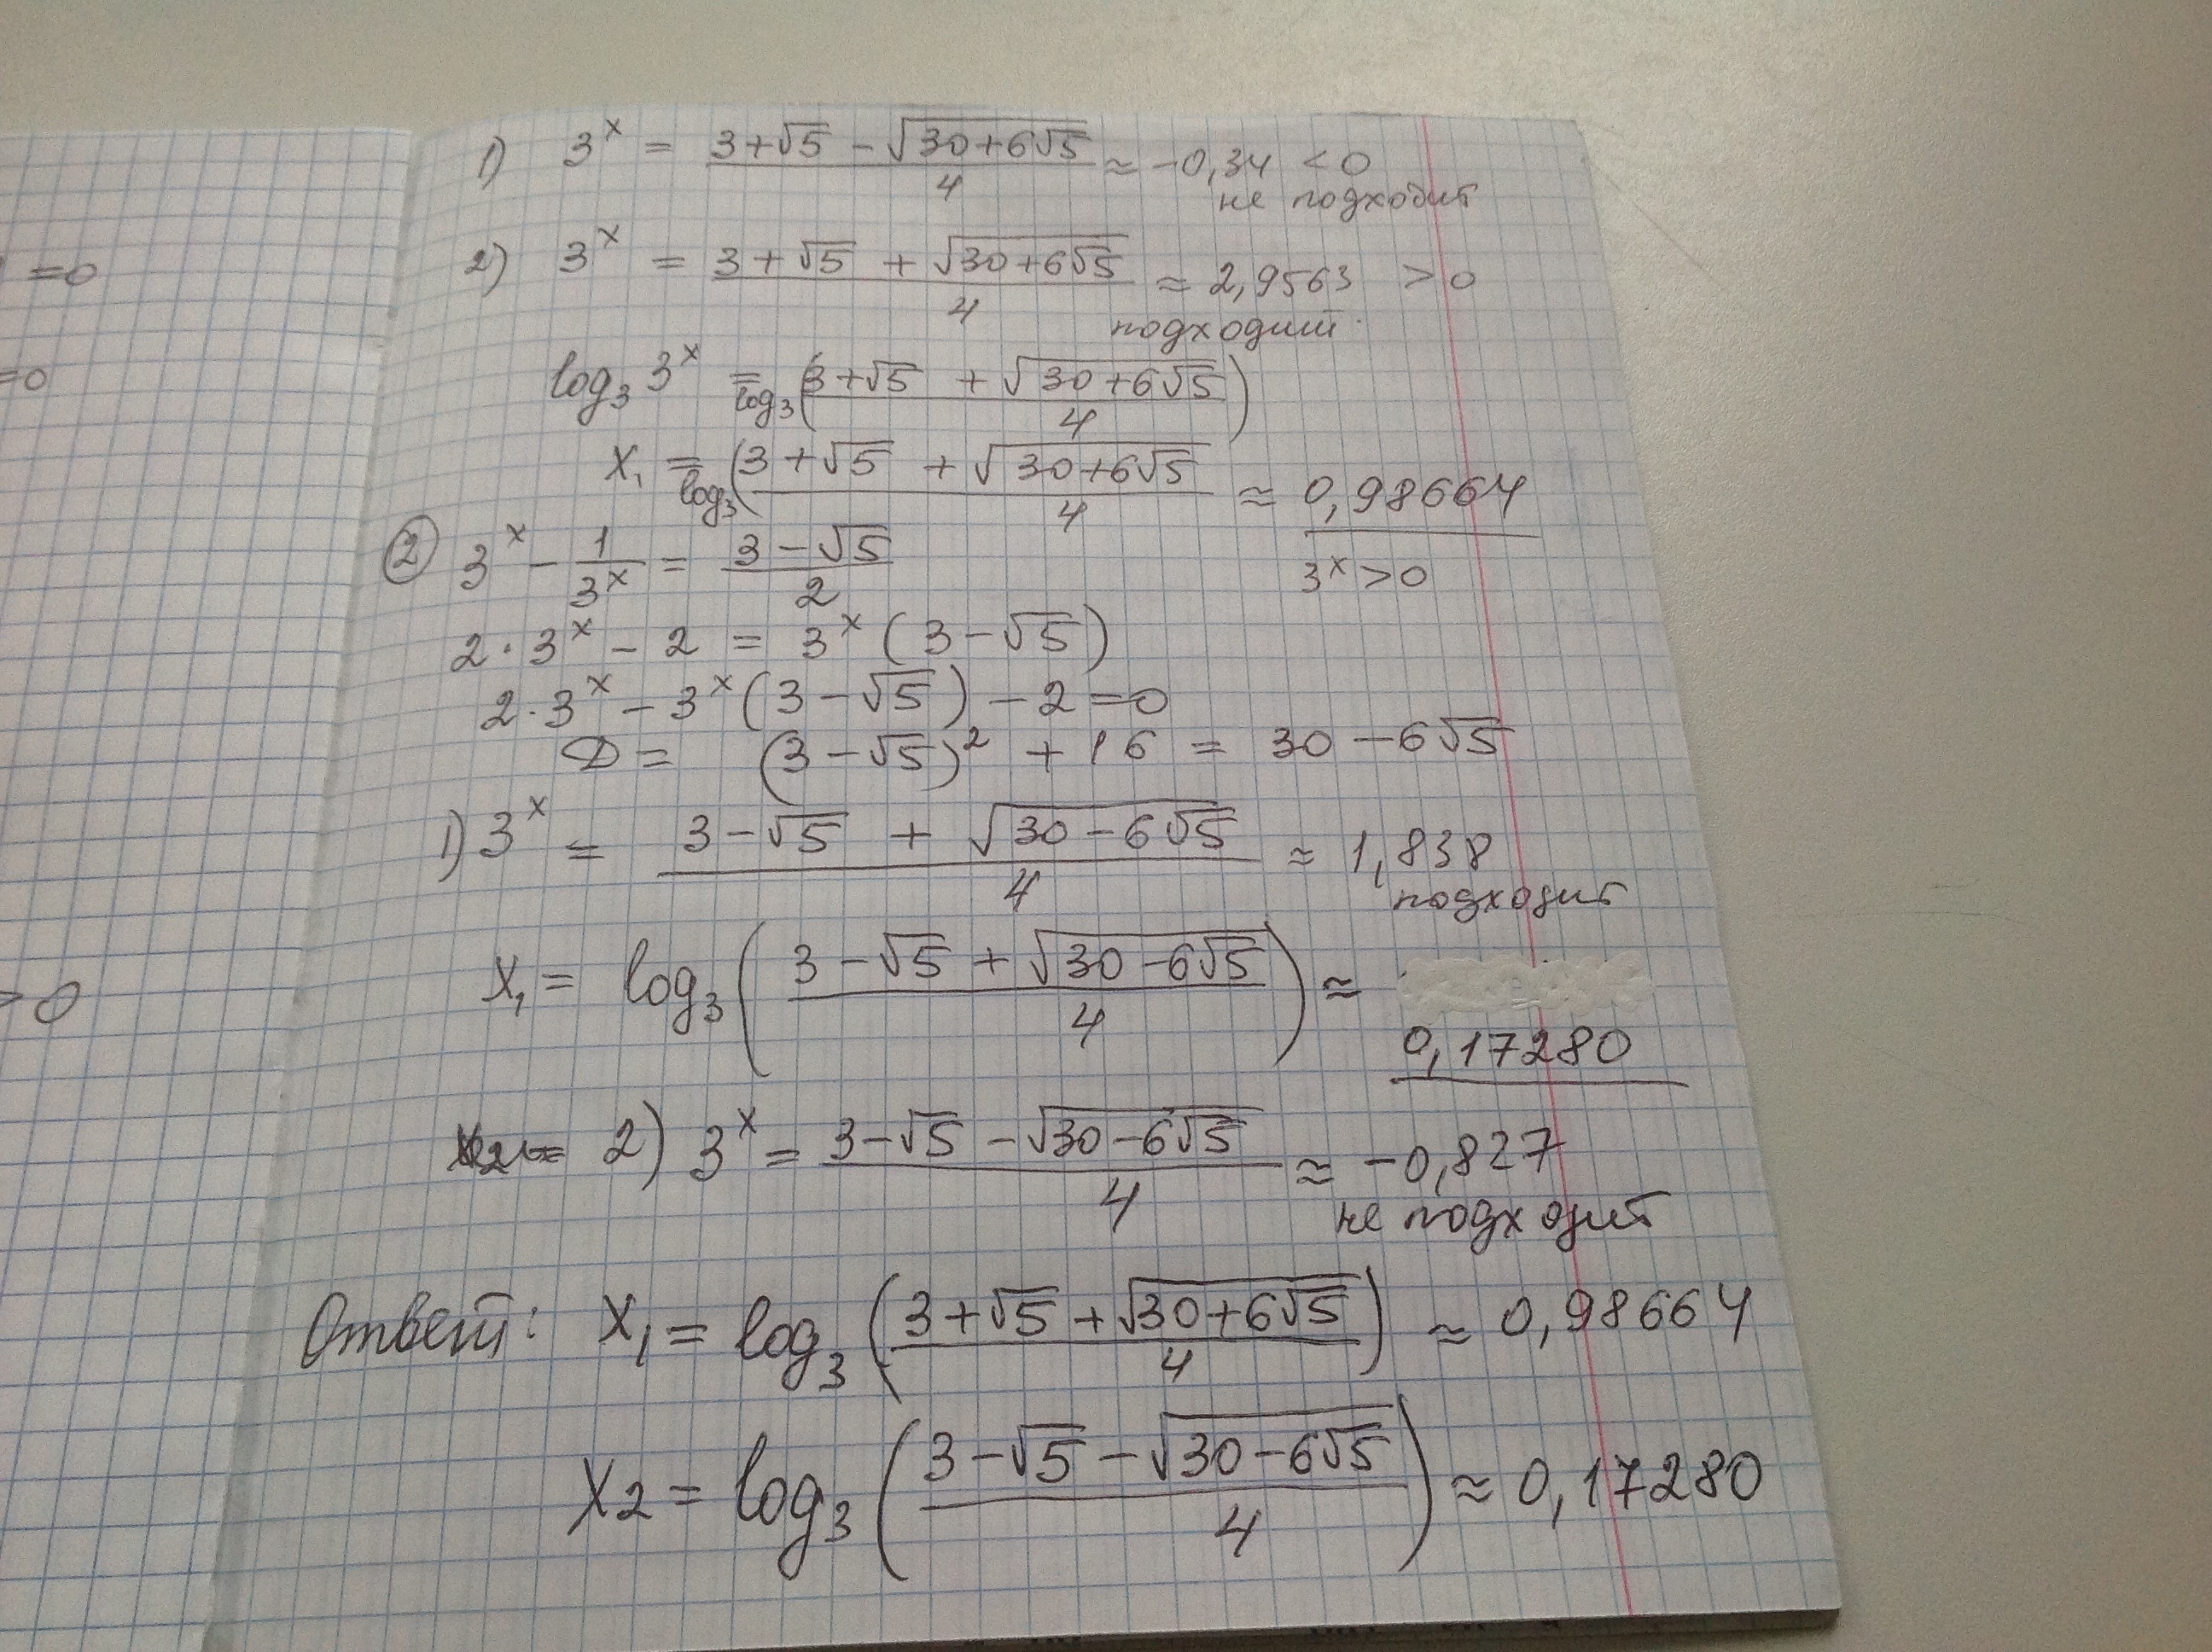 =0
=0
> 0
1) 3^x = (3+√5 − √(30+6√5))/4 ≈ −0,34 < 0
не подходит
2) 3^x = (3+√5 + √(30+6√5))/4 ≈ 2,9563 > 0
подходит.
log₃ 3^x = log₃ ((3+√5 + √(30+6√5))/4)
x₁ = log₃ ((3+√5 + √(30+6√5))/4 ≈ 0,98664
② 3^x − 1/3^x = (3−√5)/2
3^x > 0
2·3^x − 2 = 3^x (3−√5)
2·3^x − 3^x (3−√5) − 2 = 0
D = (3−√5)² + 16 = 30 − 6√5
1) 3^x = (3−√5 + √(30−6√5))/4 ≈ 1,838
подходит
x₁ = log₃ ((3−√5 + √(30−6√5))/4) ≈
0,17280
2) 3^x = (3−√5 − √(30−6√5))/4 ≈ −0,827
не подходит
Ответ: x₁ = log₃ ((3+√5 + √(30+6√5))/4) ≈ 0,98664
x2 = log₃ ((3−√5 − √(30−6√5))/4) ≈ 0,17280